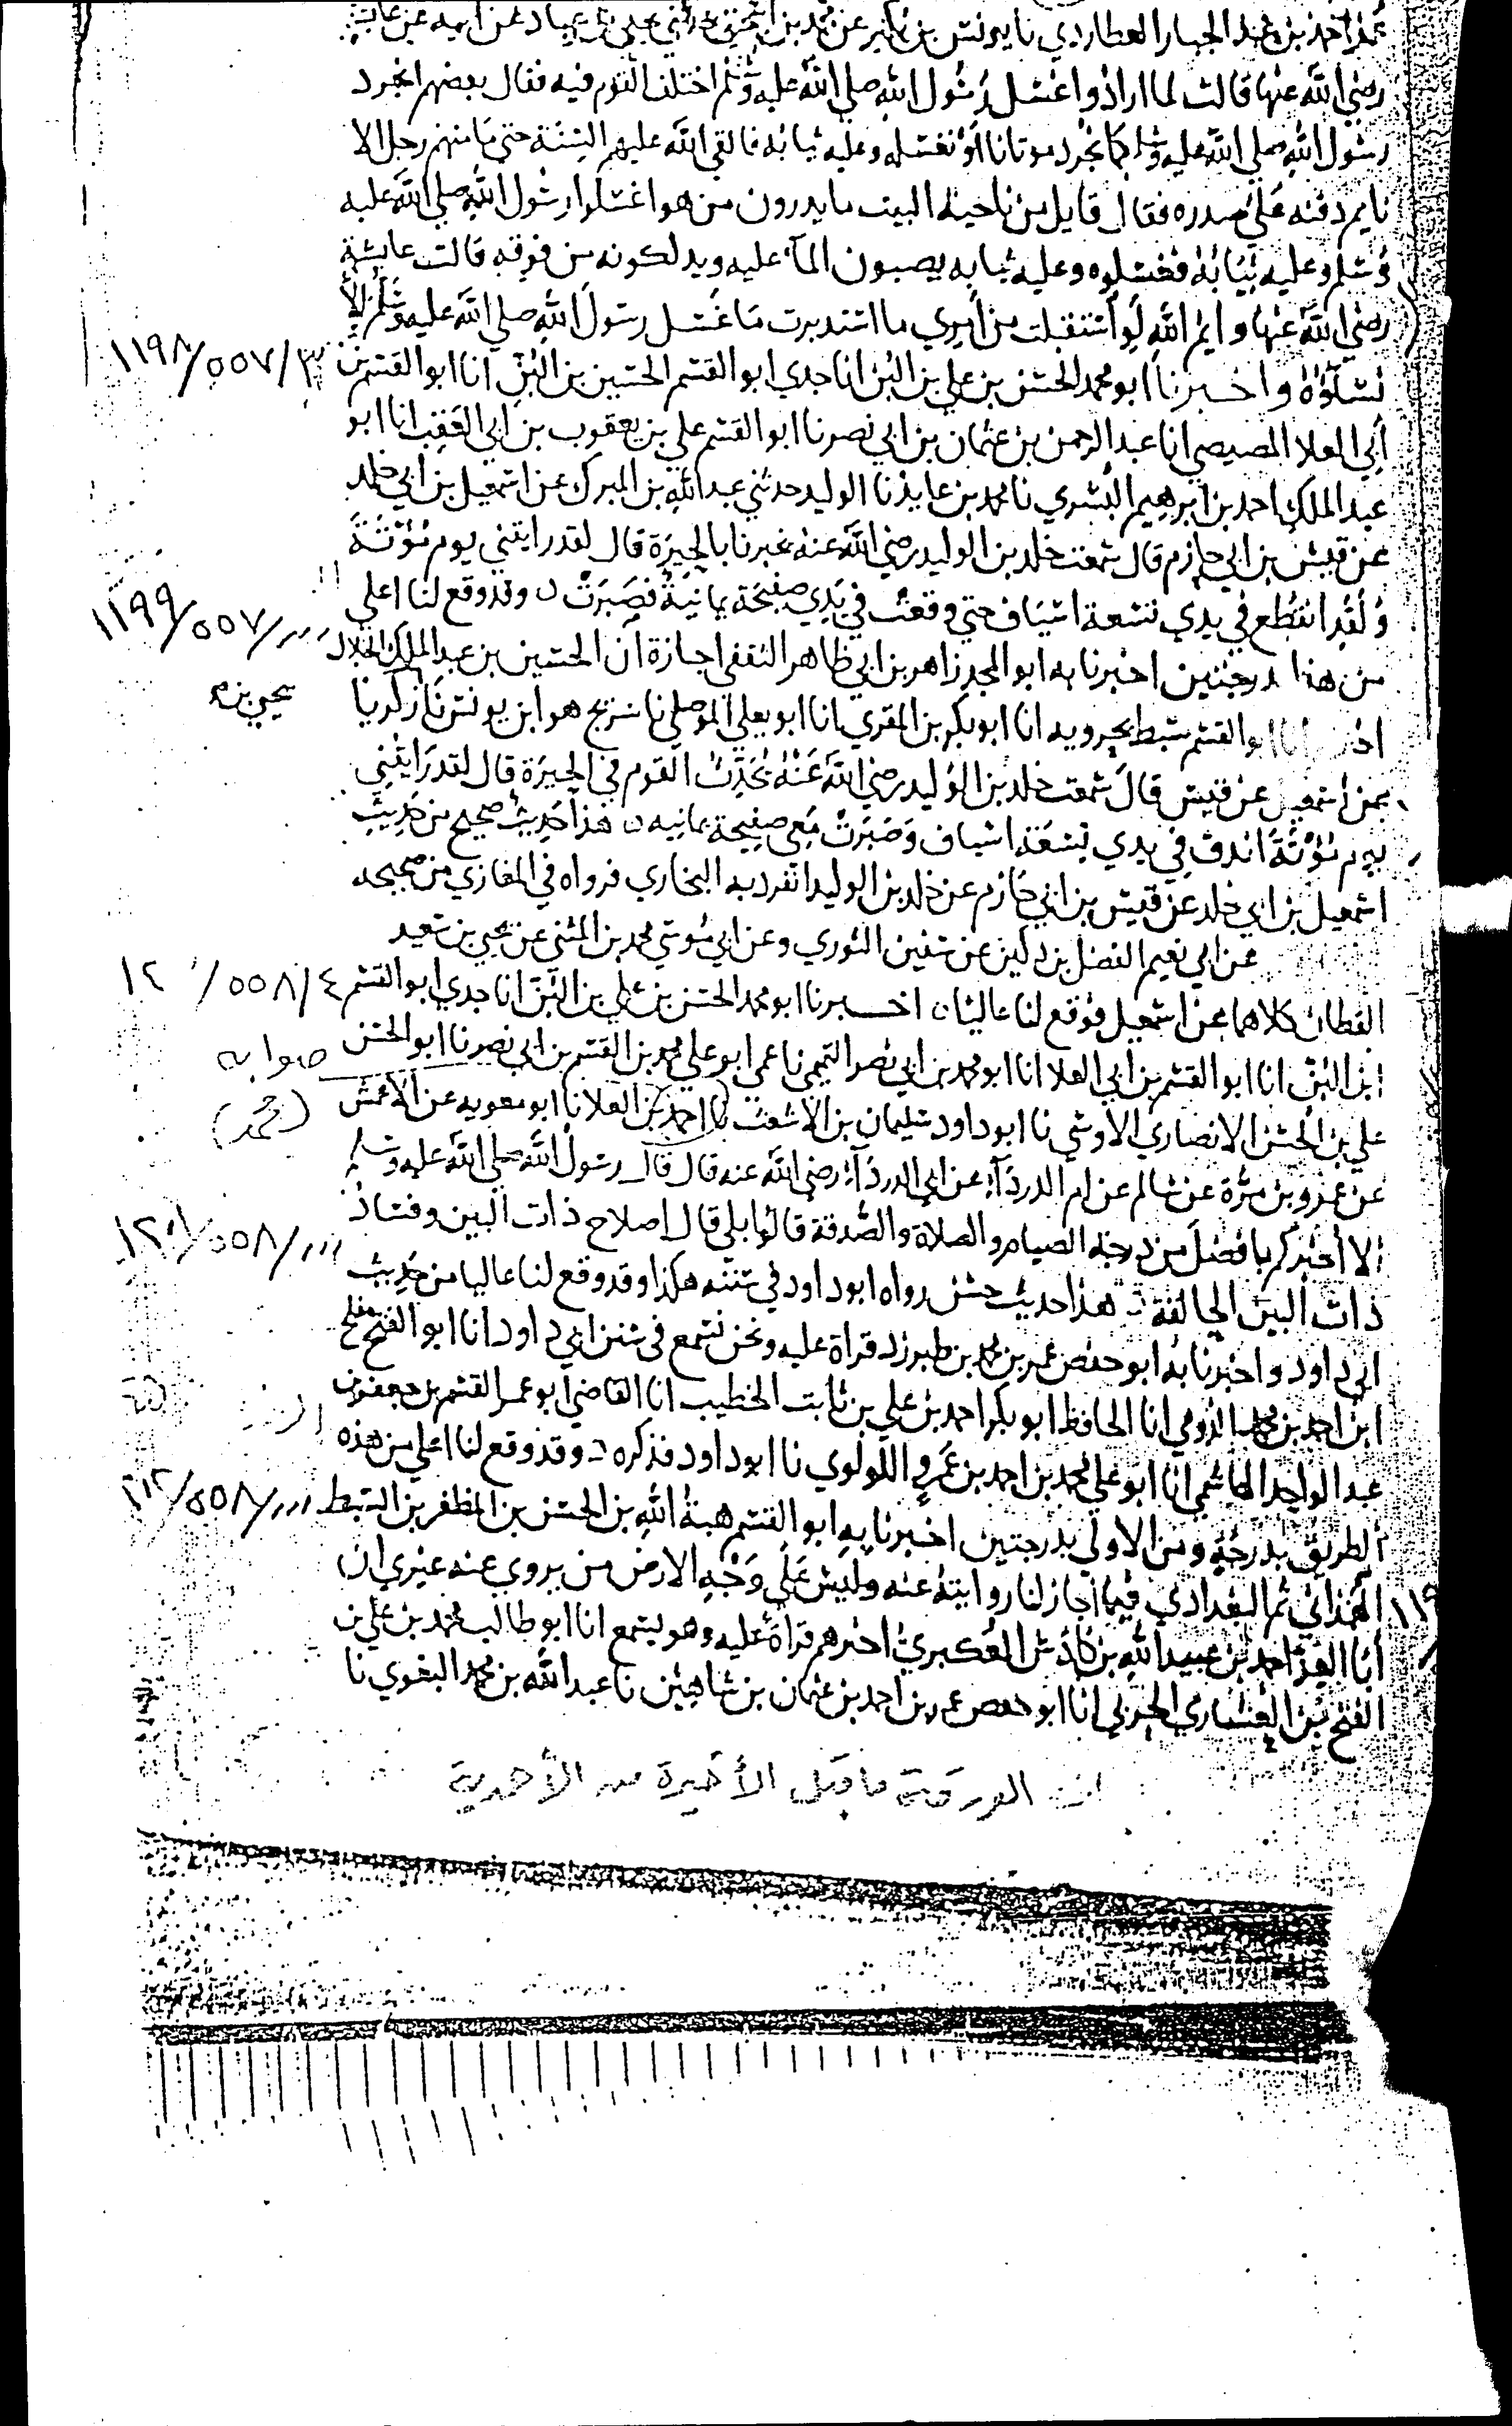 عمر احمد بن عبد الجبار العطاردي نا يونس بن بكير عن محمد بن اسحق حدثني يحيى بن عباد عن ابيه عن عايشة
رضي الله عنها قالت لما ارادوا غسل رسول الله صلي الله عليه وسلم اختلف القوم فيه فقال بعضهم انجرد
رسول الله صلي الله عليه وسلم كما نجرد موتانا او نغسله وعليه ثيابه فالقي الله عليهم السنة حتي ما منهم رجل الا
نايم ذقنه علي صدره فقال قايل من ناحية البيت ما يدرون من هو اغسلوا رسول الله صلي الله عليه
وسلم وعليه ثيابه فغسلوه وعليه ثيابه يصبون المآء عليه ويدلكونه من فوقه قالت عايشة
رضي الله عنها وايم الله لو استقبلت من امري ما استدبرت ما غسل رسول الله صلي الله عليه وسلم الا
نساؤه واخبرنا ابو محمد الحسن بن علي بن البن انا جدي ابو القسم الحسين بن البن انا ابو القسم بن
١١٩٨/٥٥٧/٣
أبي العلا المصيصي انا عبد الرحمن بن عثمان بن ابي نصر نا ابو القسم علي بن يعقوب بن ابي العقب انا ابو
عبد الملك احمد بن ابرهيم البسري نا محمد بن عايذ نا الوليد حدثني عبد الله بن المبرك عن اسمعيل بن ابي خلد
عن قيس بن ابي حازم قال سمعت خلد بن الوليد رضي الله عنه يخبرنا بالحيرة قال لقد رايتني يوم مؤتة
ولقد انقطع في يدي تسعة اسياف حتي وقعت في يدي صفيحة يمانية فصبرت ن وقد وقع لنا اعلي
١١٩٩/٥٥٧/
من هذا بدرجتين اخبرنا به ابو المجد زاهر بن ابي طاهر الثقفي اجازة ان الحسين بن عبد الملك الخلال
انا ابو القسم سبط بحرويه انا ابو بكر بن المقري انا ابو يعلي الموصلي نا سريج هو ابن يونس نا زكريا
يحيى بن
عن اسمعيل عن قيس قال سمعت خلد بن الوليد رضي الله عنه يحدث القوم في الحيرة قال لقد رايتني
يوم مؤتة اندق في يدي تسعة اسياف وصبرت معي صفيحة يمانيه ن هذا حديث صحيح من حديث
اسمعيل بن ابي خلد عن قيس بن ابي حازم عن خلد بن الوليد انفرد به البخاري فرواه في المغازي من صحيحه
عن ابي نعيم الفضل بن دكين عن سفين الثوري وعن ابي موسي محمد بن المثني عن يحيي بن سعيد
القطان كلاهما عن اسمعيل فوقع لنا عاليا ن اخبرنا ابو محمد الحسن بن علي بن البن انا جدي ابو القسم
٥٥٨/٤
ابن البن انا ابو القسم بن ابي العلا انا ابو محمد بن ابي نصر التميمي نا عمي ابو علي محمد بن القسم بن ابي نصر نا ابو الحسن
صوابه
علي بن الحسن الانصاري الاوسي نا ابو داود سليمان بن الاشعث نا احمد بن العلا نا ابو معويه عن الاعمش
(محمد)
عن عمرو بن مرة عن سالم عن ام الدردآء عن ابي الدردآء رضي الله عنه قال قال رسول الله صلي الله عليه وسلم
الا اخبركم بافضل من درجة الصيام والصلاة والصدقة قالوا بلي قال اصلاح ذات البين وفساد
ذات البين الحالقة هذا حديث حسن رواه ابو داود في سننه هكذا وقد وقع لنا عاليا من حديث
١٢٠١/٥٥٨/
ابي داود واخبرنا به ابو حفص عمر بن محمد بن طبرزد قراة عليه ونحن نسمع في سنن ابي داود انا ابو الفتح مفلح
ابن احمد بن محمد الدومي انا الحافظ ابو بكر احمد بن علي بن ثابت الخطيب انا القاضي ابو عمر القسم بن جعفر بن
عبد الواحد الهاشمي انا ابو علي محمد بن احمد بن عمرو اللولوي نا ابو داود فذكره وقد وقع لنا اعلي من هذه
الطريق بدرجة ومن الاولي بدرجتين اخبرنا به ابو القسم هبة الله بن الحسن بن المظفر بن السبط
الهمذاني ثم البغدادي فيما اجاز لنا روايته عنه وليس علي وجه الارض من يروي عنه غيري ان
انا العز احمد بن عبيد الله بن كادش العكبري اخبرهم قراة عليه وهو يسمع انا ابو طالب محمد بن علي بن
الفتح بن العشاري الحربي انا ابو حفص عمر بن احمد بن عثمان بن شاهين نا عبد الله بن محمد البغوي نا
الورقة ما قبل الأخيرة من الأحمدية